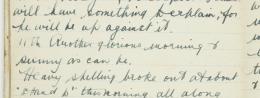 will have something to explain, for
he will be up against it.
11th Another glorious morning &
sunny as can be.
Heavy shelling broke out at about
"stand to" this morning all along